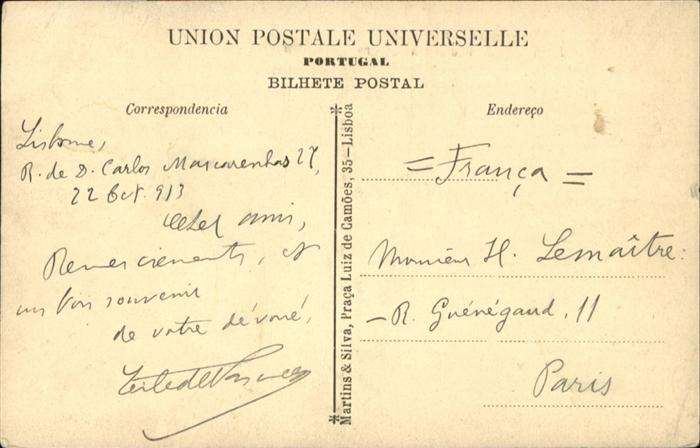 UNION POSTALE UNIVERSELLE
PORTUGAL
BILHETE POSTAL
Correspondencia
Lisbonne,
R. de D. Carlos Mascarenhas 27,
22 Oct. 913
Cher ami,
Remerciements, et
un bon souvenir
de votre dévoué,
Martins & Silva, Praça Luiz de Camões, 35—Lisboa
Endereço
= França =
Monsieur H. Lemaître:
— R. Guénégaud, 11
Paris